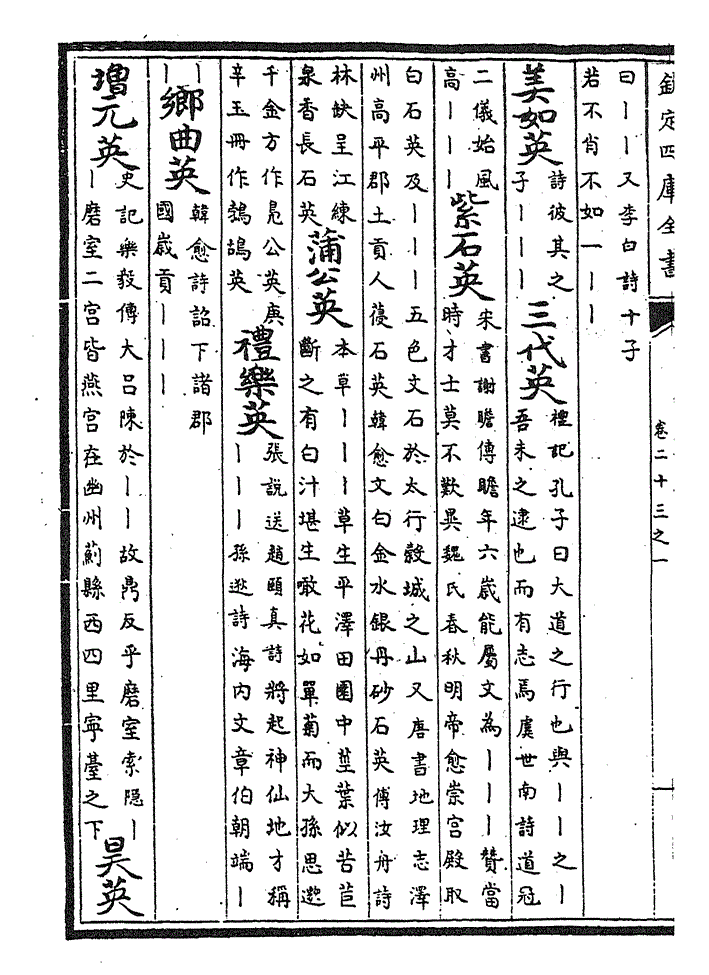 欽定四庫全書 卷二十三之一
曰丨丨又李白詩十子
若不肖不如一丨丨
美如英
詩彼其之
子丨丨丨
三代英
禮記孔子曰大道之行也與丨丨之丨
吾未之逮也而有志焉虞世南詩道冠
二儀始風
高丨丨丨
紫石英
宋書謝瞻傳瞻年六歲能屬文為丨丨丨贊當
時才士莫不歎異魏氏春秋明帝愈崇宮殿取
白石英及丨丨丨五色文石於太行榖城之山又唐書地理志澤
州高平郡土貢人葠石英韓愈文句金水銀丹砂石英傅汝舟詩
林缺呈江練
泉香長石英
蒲公英
本草丨丨丨草生平澤田園中莖葉似苦苣
斷之有白汁堪生啖花如單菊而大孫思邈
千金方作鳧公英庚
辛玉冊作鵓鴣英
禮樂英
張說送趙頤真詩將起神仙地才稱
丨丨丨孫逖詩海内文章伯朝端丨
丨
丨
鄉曲英
韓愈詩詔下諸郡
國歲貢丨丨丨
增元英
史記樂毅傳大呂陳於丨丨故鼎反乎磨室索隱丨
丨磨室二宮皆燕宮在幽州薊縣西四里寧臺之下
昊英